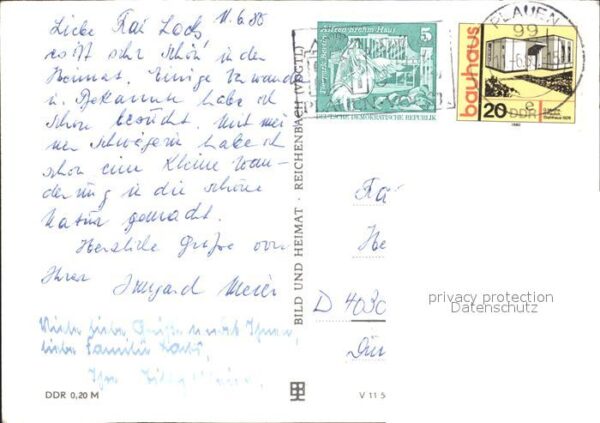 Liebe Frau Lochs 11.6.85
es ist sehr schön in der
Heimat. Einige Verwandte
u. Bekannte habe ich
schon besucht. Mit mei-
ner Schwägerin habe ich
schon eine kleine Wan-
derung in die schöne
Natur gemacht.
Herzliche Grüße von
Ihrer Irmgard Meier
liebe Familie
DDR 0,20 M
BILD UND HEIMAT · REICHENBACH (VOGTL)
V 11 5
5
DEUTSCHE DEMOKRATISCHE REPUBLIK
bauhaus
20
DDR
1980
PLAUEN
99
e
Frau
He
D 4030
privacy protection
Datenschutz